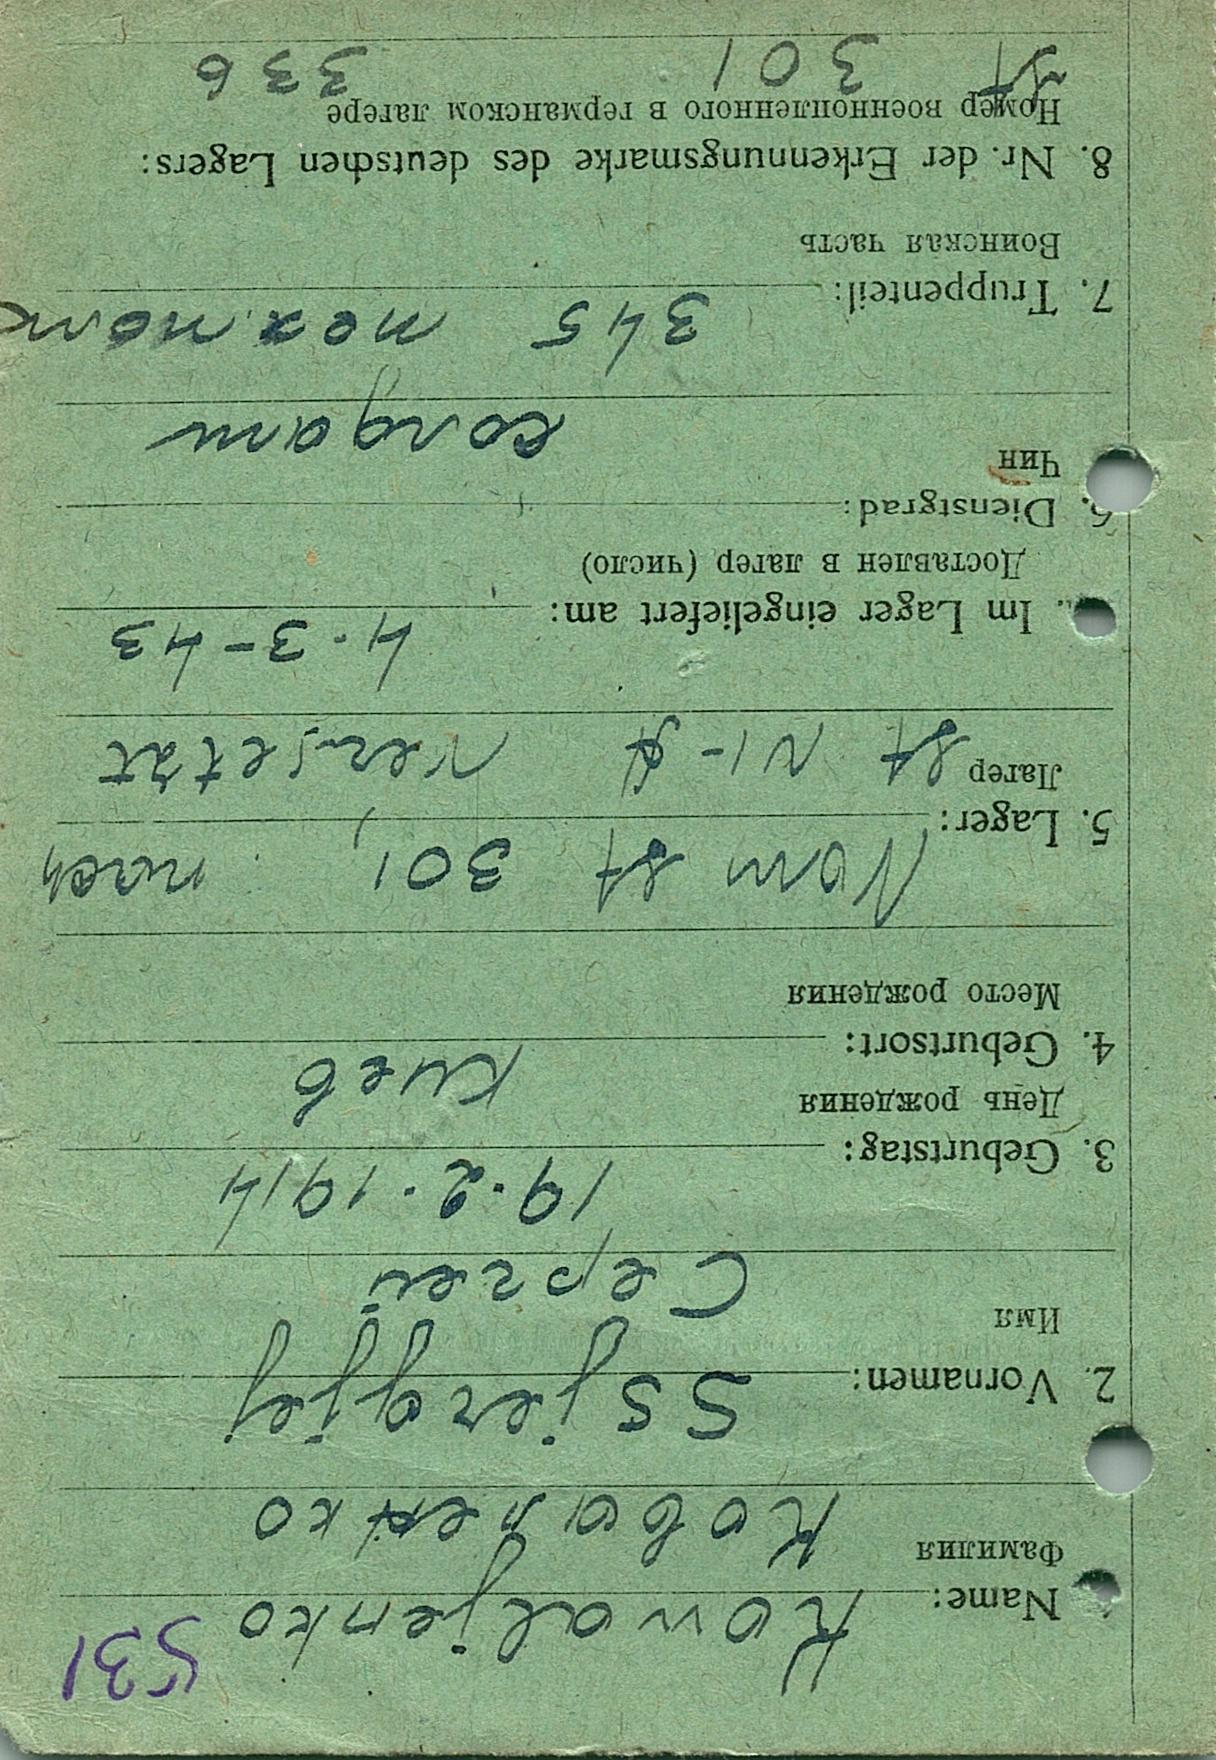 531
Name: Kowaljenko
Фамилия Коваленко
2. Vornamen: Ssjergjej
Имя Сергей
3. Geburtstag: 19.2.1914
День рождения
4. Geburtsort: Киев
Место рождения
5. Lager: Vom St 301, nach
Лагер St VI-A
Im Lager eingeliefert am: 4.3-43
Доставлен в лагер (число)
6. Dienstgrad:
Чин солдат
7. Truppenteil: 345
Воинская часть
8. Nr. der Erkennungsmarke des deutschen Lagers:
Номер военнопленного в германском лагере
St 301 336